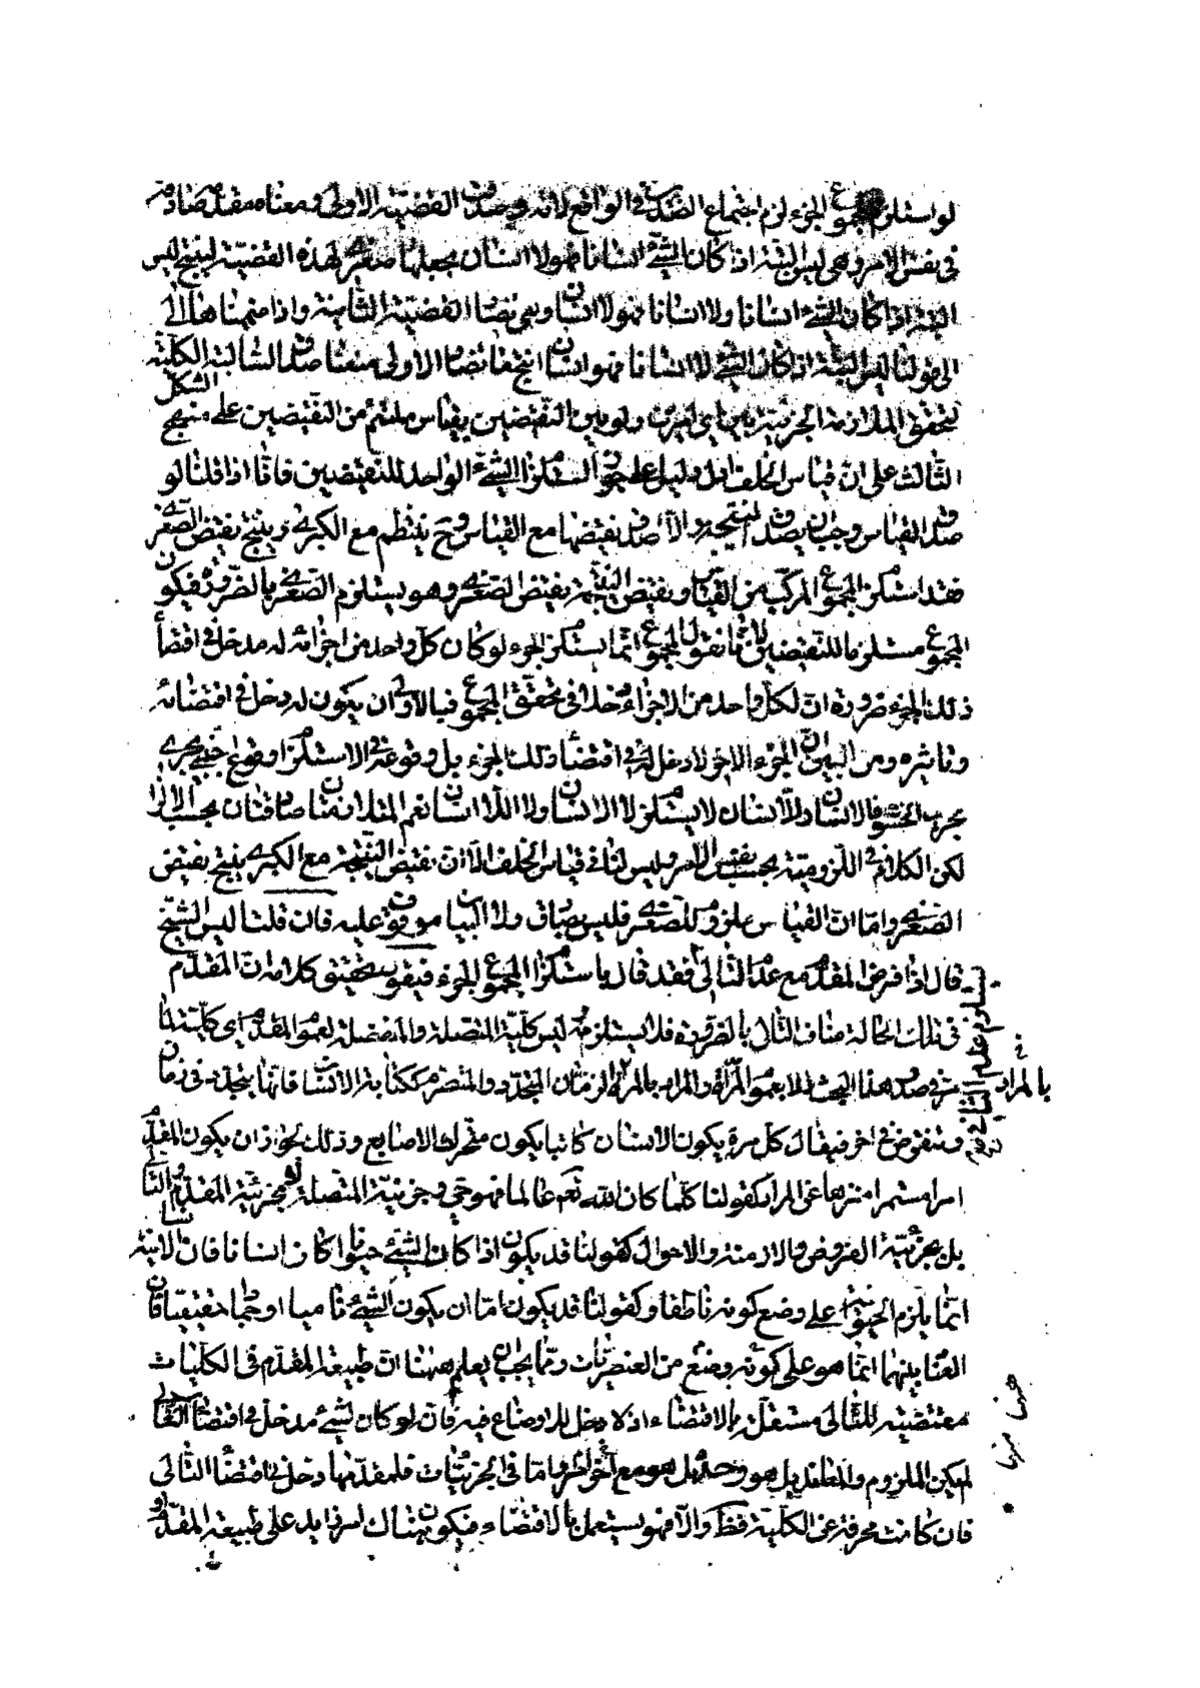 لو استلزم المجموع الجزء لزم اجتماع الضدين في الواقع لانه وصدق القضية الاولى ومعناه مقدم صادق
في نفس الامر وهي ليس البتة اذا كان الشئ انسانا فهو لا انسان نجعلها صغرى لهذه القضية لينتج ليس
البتة اذا كان الشئ انسانا ولا انسانا فهو لا انسان وهي نقيضا القضية الثانية واذا ضممناها الى
الى قولنا ليس البتة اذا كان الشئ لا انسانا فهو انسان انتج نقائضا الاولى صدق السالبة الكلية
لتحقق الملازمة الجزئية بين اي امرين ولو بين النقيضين بقياس ملتئم من النقيضين على منهج الشكل
الثالث على ان قياس الخلف ادل دليل على جواز استلزام الشئ الواحد للنقيضين فانا اذا قلنا لو
صدق القياس وجب ان يصدق النتيجة والا صدق نقيضها مع القياس وح ينتظم مع الكبرى وينتج نقيض الصغرى
فقد استلزم المجموع المركب من القياس ونقيض النتيجة نقيض الصغرى وهو يستلزم الصغرى بالضرورة فيكون
المجموع مستلزما للنقيضين لانا نقول المجموع انما يستلزم الجزء لو كان كل واحد من اجزائه له مدخل في اقتضاء
ذلك الجزء ضرورة ان لكل واحد من الاجزاء دخلا في تحقق المجموع فبالاولى ان يكون له دخل في اقتضائه
وتاثيره ومن البين ان الجزء الاخر لا دخل له في اقتضاء ذلك الجزء بل وقوعه في الاستلزام وقوع اجنبي يجرى
مجرى الحشو فالانسان ولا انسان لا يستلزم لا الانسان ولا اللا انسان نعم المتلازمتان صادقتان بحسب الالزام
لكن الكلام في اللزومية بحسب نفس الامر وليس لنا في قياس الخلف الا ان نقيض النتيجة مع الكبرى ينتج نقيض
الصغرى واما ان القياس ملزوم للصغرى فليس بصادق ولا البيان موقوف عليه فان قلت اليس الشيخ
قال اذا فرض المقدم مع عدم التالى فقد قال باستلزام المجموع الجزء فنقول تحقيق كلامه ان المقدم
في تلك الحالة مناف التالى بالضرورة فلا يستلزمه ليس كلية المتصلة والمنفصلة لعموم المقدم اي كليته
في صدر هذا البحث لا بعموم المرات والمراد بالمرة الزمان المتجدد والمنصرم ككتابة الانسان فانها يتجدد في زمان
وتنقرض في اخر فيقال كل مرة يكون الانسان كاتبا يكون متحرك الاصابع وذلك لجواز ان يكون المقدم
امرا مستمرا منزها عن المرات كقولنا كلما كان الله تعم عالما فهو حي وجزئية المتصلة لا بجزئية المقدم والتالى
بل بجزئية الفروض والازمنة والاحوال كقولنا قد يكون اذا كان الشئ حيوانا كان انسانا فان الانسانية
انما يلزم الحيوانية على وضع كونه ناطقا وكقولنا قد يكون اما ان يكون الشئ ناميا او جمادا حقيقيا فان
العناد بينهما انما هو على كونه بوضع من العنصريات ومما يجب ان يعلم ههنا ان طبيعة المقدم في الكليات
مقتضية للتالى مستقلة بالاقتضاء اذ لا دخل للاوضاع فيه فان لو كان لشئ مدخل في اقتضاء التالى
لم يكن الملزوم والمعاند بل هو وحده بل هو مع اخر واما في الجزئيات فلمقدمها دخل في اقتضاء التالى
فان كانت محرفة عن الكلية فظ والا فهو يستعمل بالاقتضاء فيكون هناك امر زايد على طبيعة المقدم